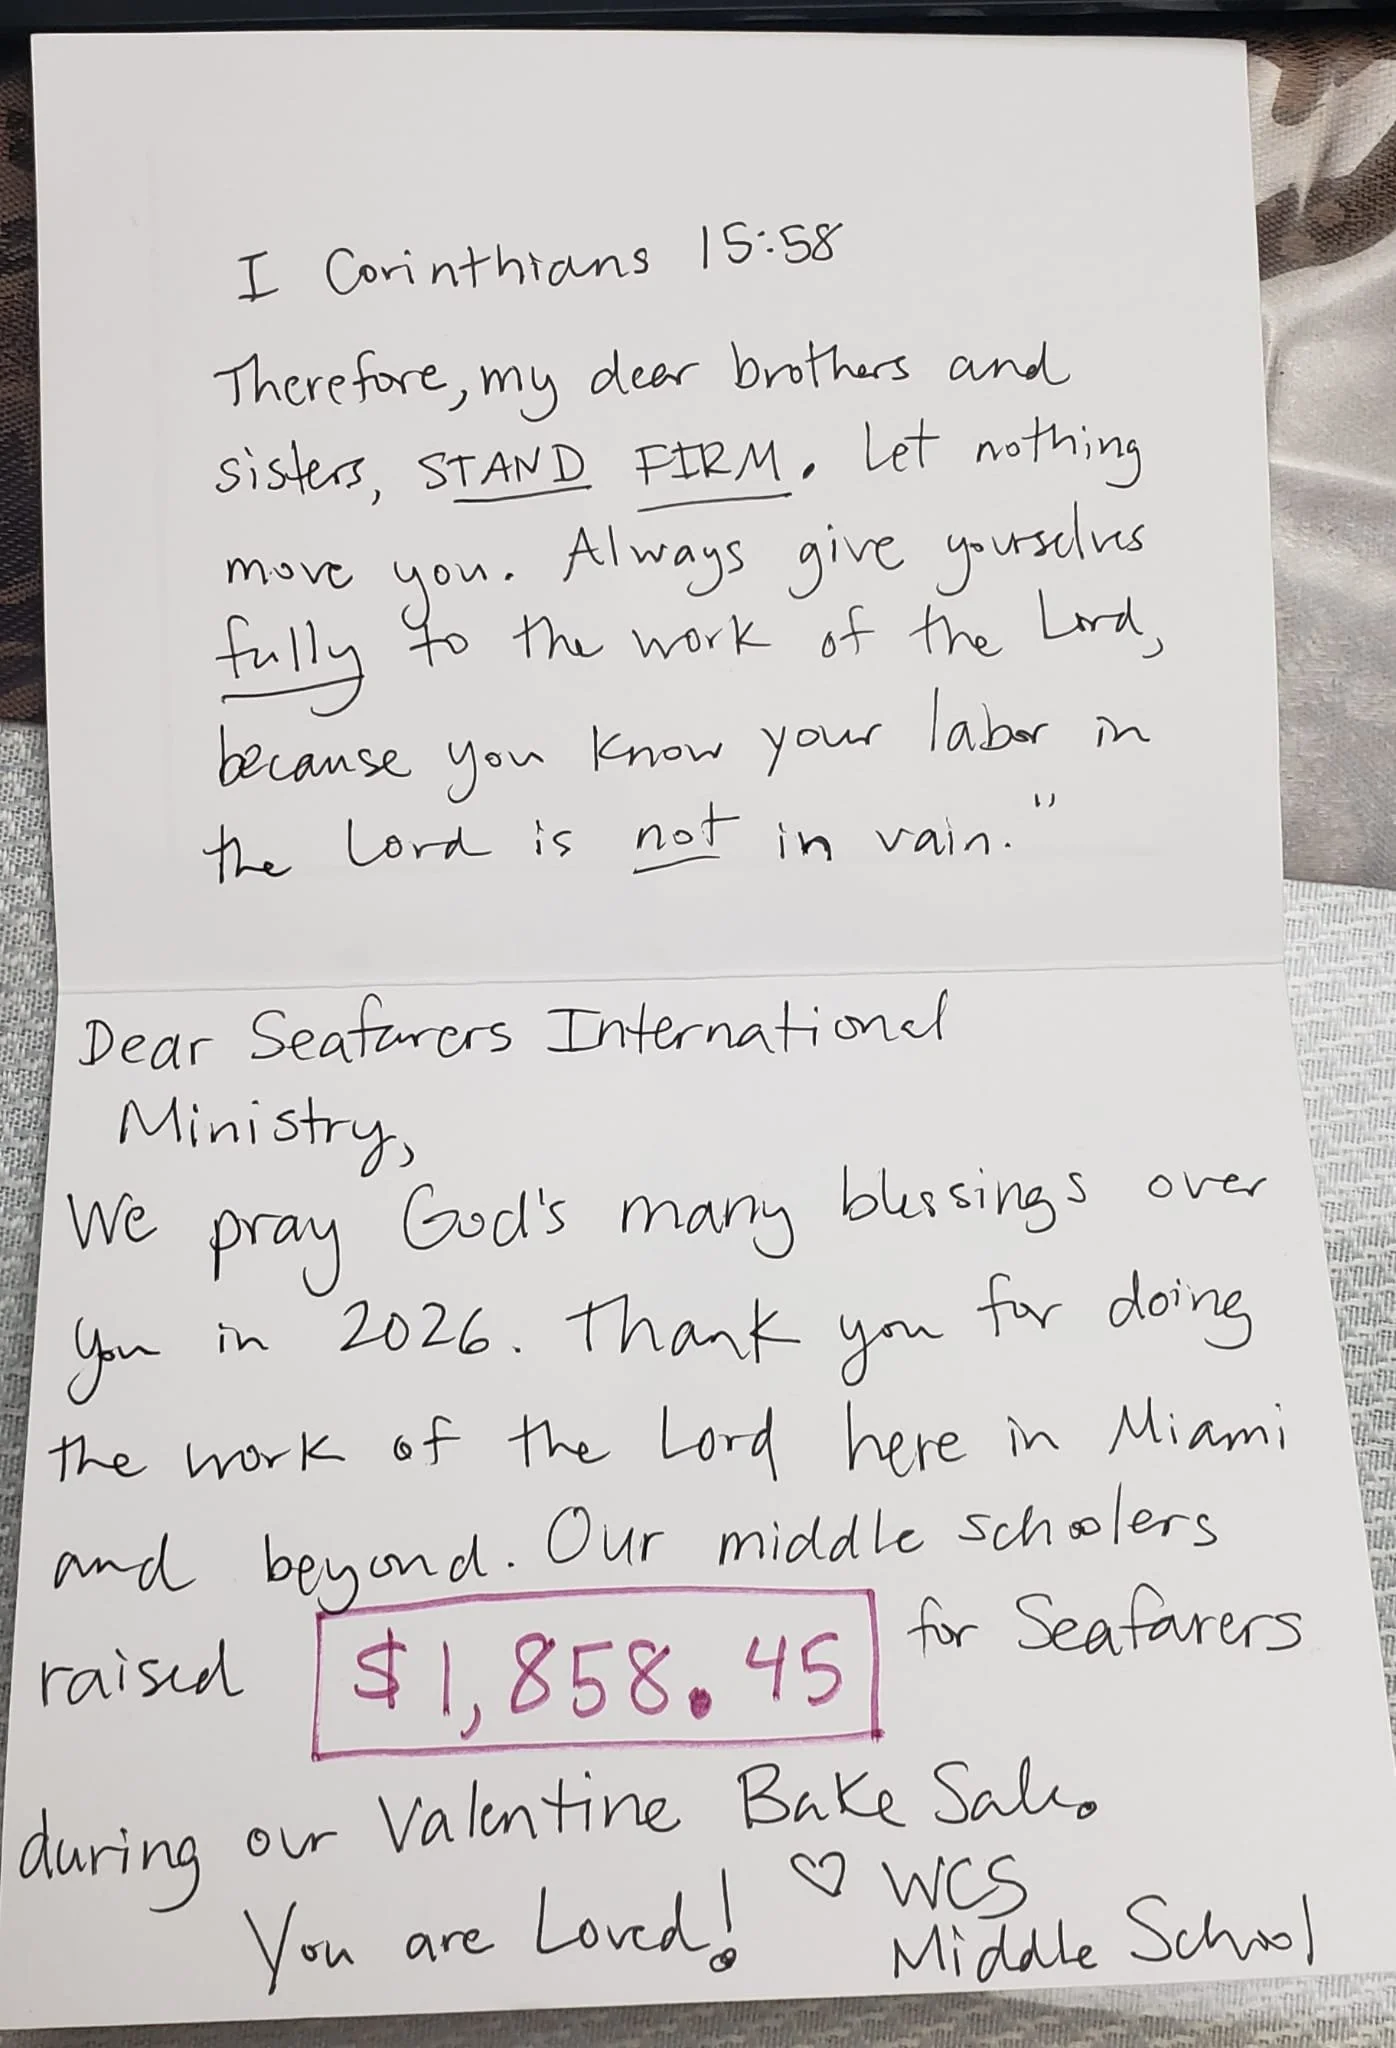 I Corinthians 15:58
Therefore, my dear brothers and
sisters, STAND FIRM. Let nothing
move you. Always give yourselves
fully to the work of the Lord,
because you know your labor in
the Lord is not in vain."
Dear Seafarers International
Ministry,
We pray God's many blessings over
you in 2026. Thank you for doing
the work of the Lord here in Miami
and beyond. Our middle schoolers
raised $1,858.45 for Seafarers
during our Valentine Bake Sale.
You are Loved! ♡ WCS
Middle School